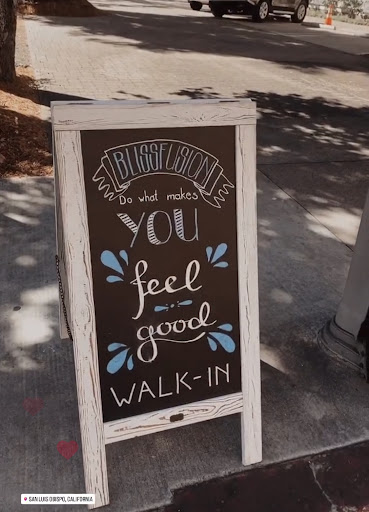 BLISSFUSION
Do what makes
YOU
feel
good
WALK-IN
SAN LUIS OBISPO, CALIFORNIA